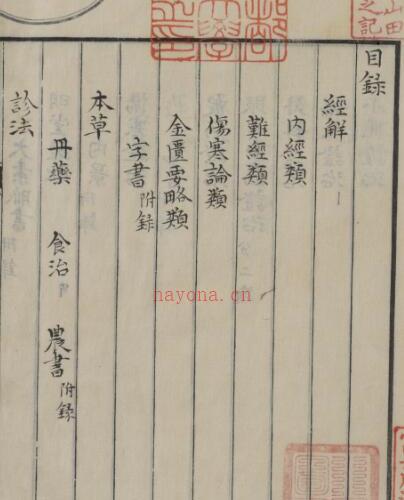 目録
經解
内經類
難經類
傷寒論類
金匱要略類
字書附録
本草
丹藥 食治 農書附録
診法
山田
之記
nayona.cn